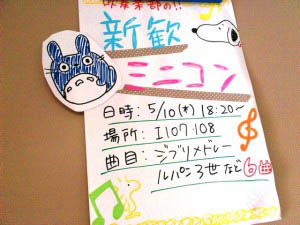 吹奏楽部の!!
新歓
ミニコン
日時: 5/10(木) 18:20~
場所: I107・108
曲目: ジブリメドレー
ルパン3世など6曲